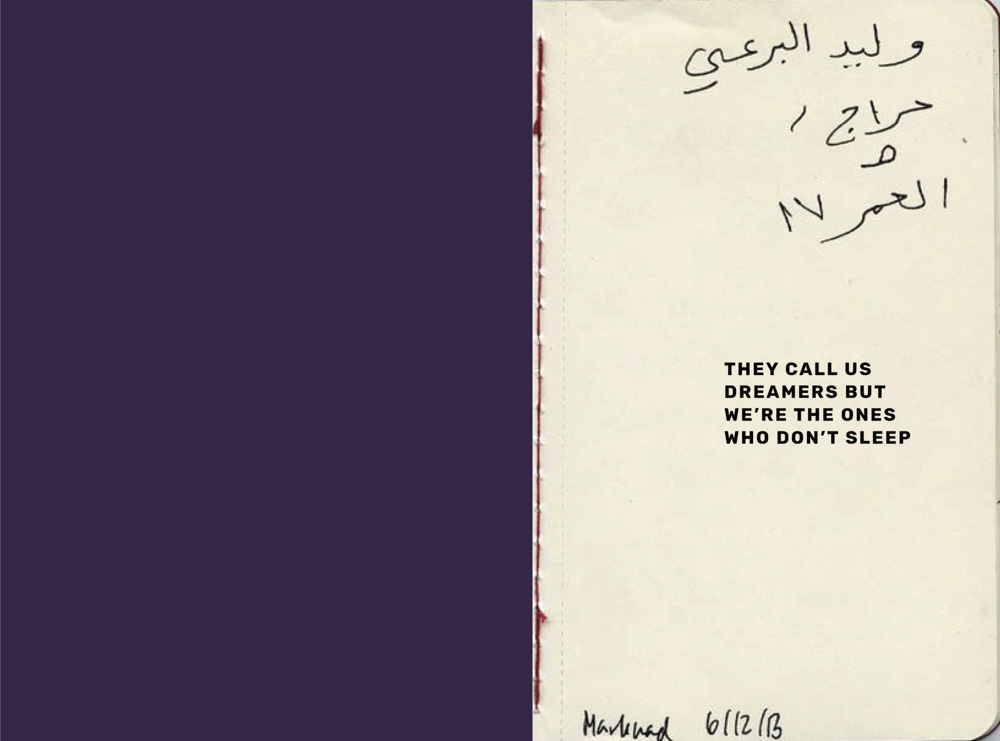 وليد البرعي
حراج /
العمر ١٧
THEY CALL US
DREAMERS BUT
WE'RE THE ONES
WHO DON'T SLEEP
6/12/13